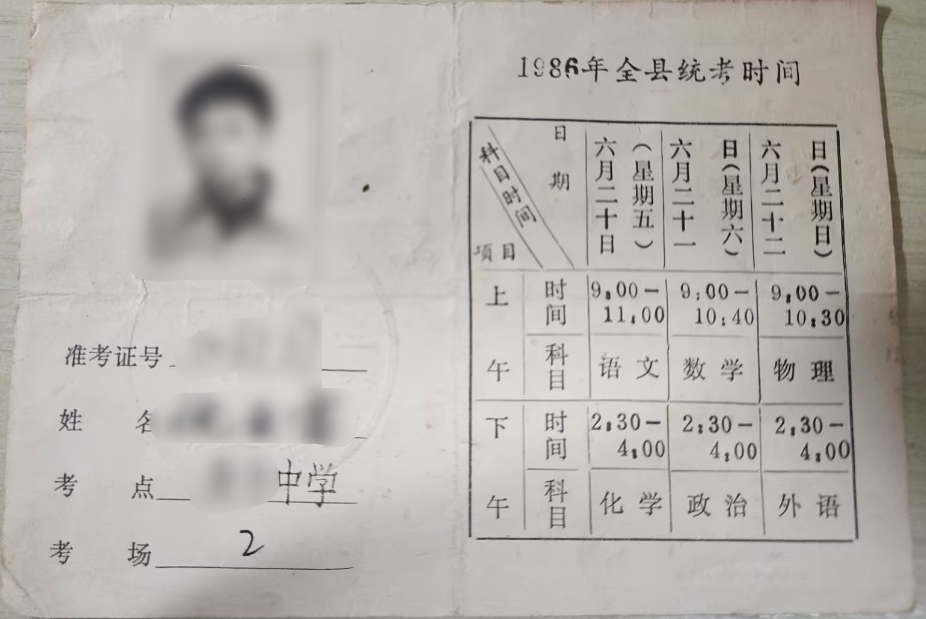 准考证号
姓 名
考 点 中学
考 场 2
1986年全县统考时间
日期 科目时间 项目
六月二十日(星期五)
六月二十一日(星期六)
六月二十二日(星期日)
上午
时间 9:00-11:00 9:00-10:40 9:00-10:30
科目 语文 数学 物理
下午
时间 2:30-4:00 2:30-4:00 2:30-4:00
科目 化学 政治 外语